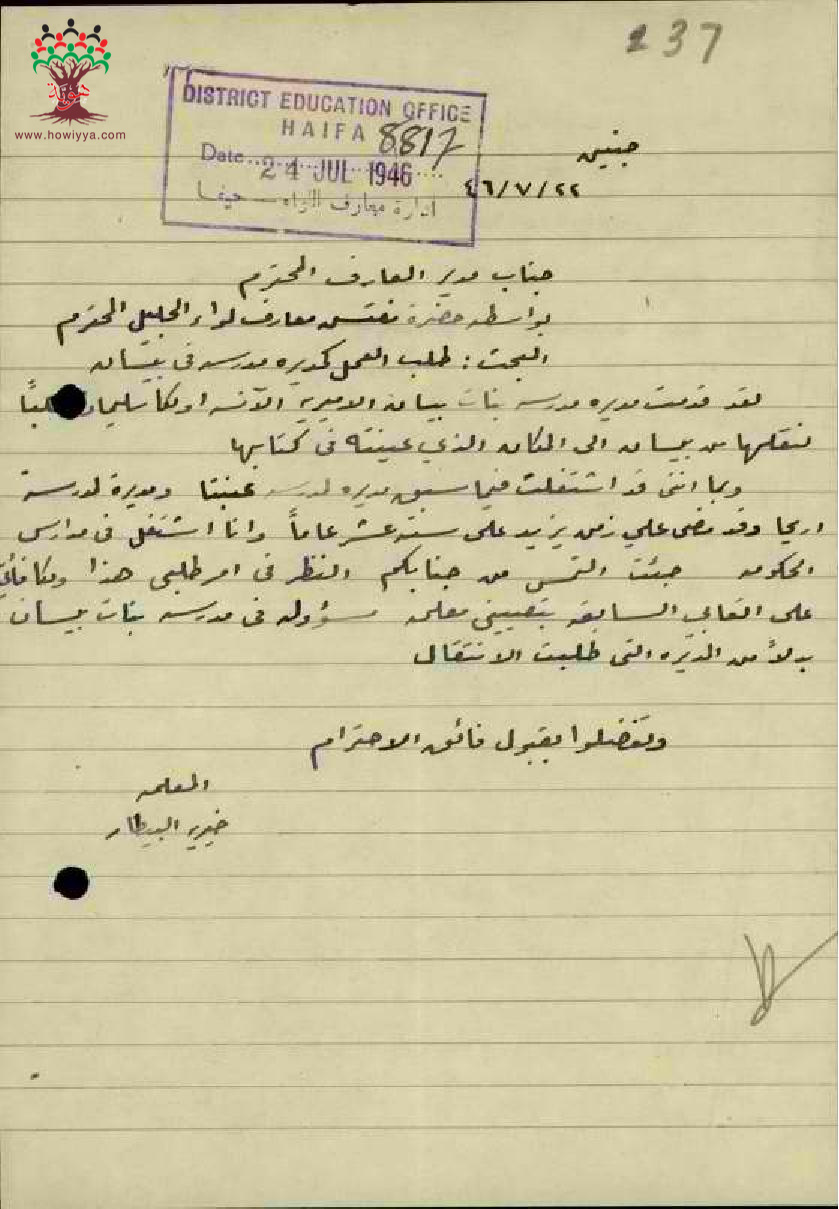 237
هوية
www.howiyya.com
DISTRICT EDUCATION OFFICE
HAIFA 8817
Date 24 JUL 1946
ادارة معارف اللواء — حيفا
جنين
٢٢/٧/٤٦
جناب مدير المعارف المحترم
بواسطة حضرة مفتش معارف لواء الجليل المحترم
البحث : طلب العمل كمديره مدرسه في بيسان
لقد قدمت مديره مدرسه بنات بيسان الاميريه الآنسه اولكا سليمان
لنقلها من بيسان الى المكان الذي عينته في كتابها
وبما انني قد اشتغلت فيما سبق مديره لمدرسه عنبتا ومديرة لمدرسة
اريحا وقد مضى علي زمن يزيد على ستة عشر عاماً وانا اشتغل في مدارس
الحكومه جئت التمس من جنابكم النظر في امر طلبي هذا ومكافأتي
على اتعابي السابقه بتعييني معلمه مسؤوله في مدرسه بنات بيسان
بدلاً من المديره التي طلبت الانتقال
وتفضلوا بقبول فائق الاحترام
المعلمه
خيريه البيطار